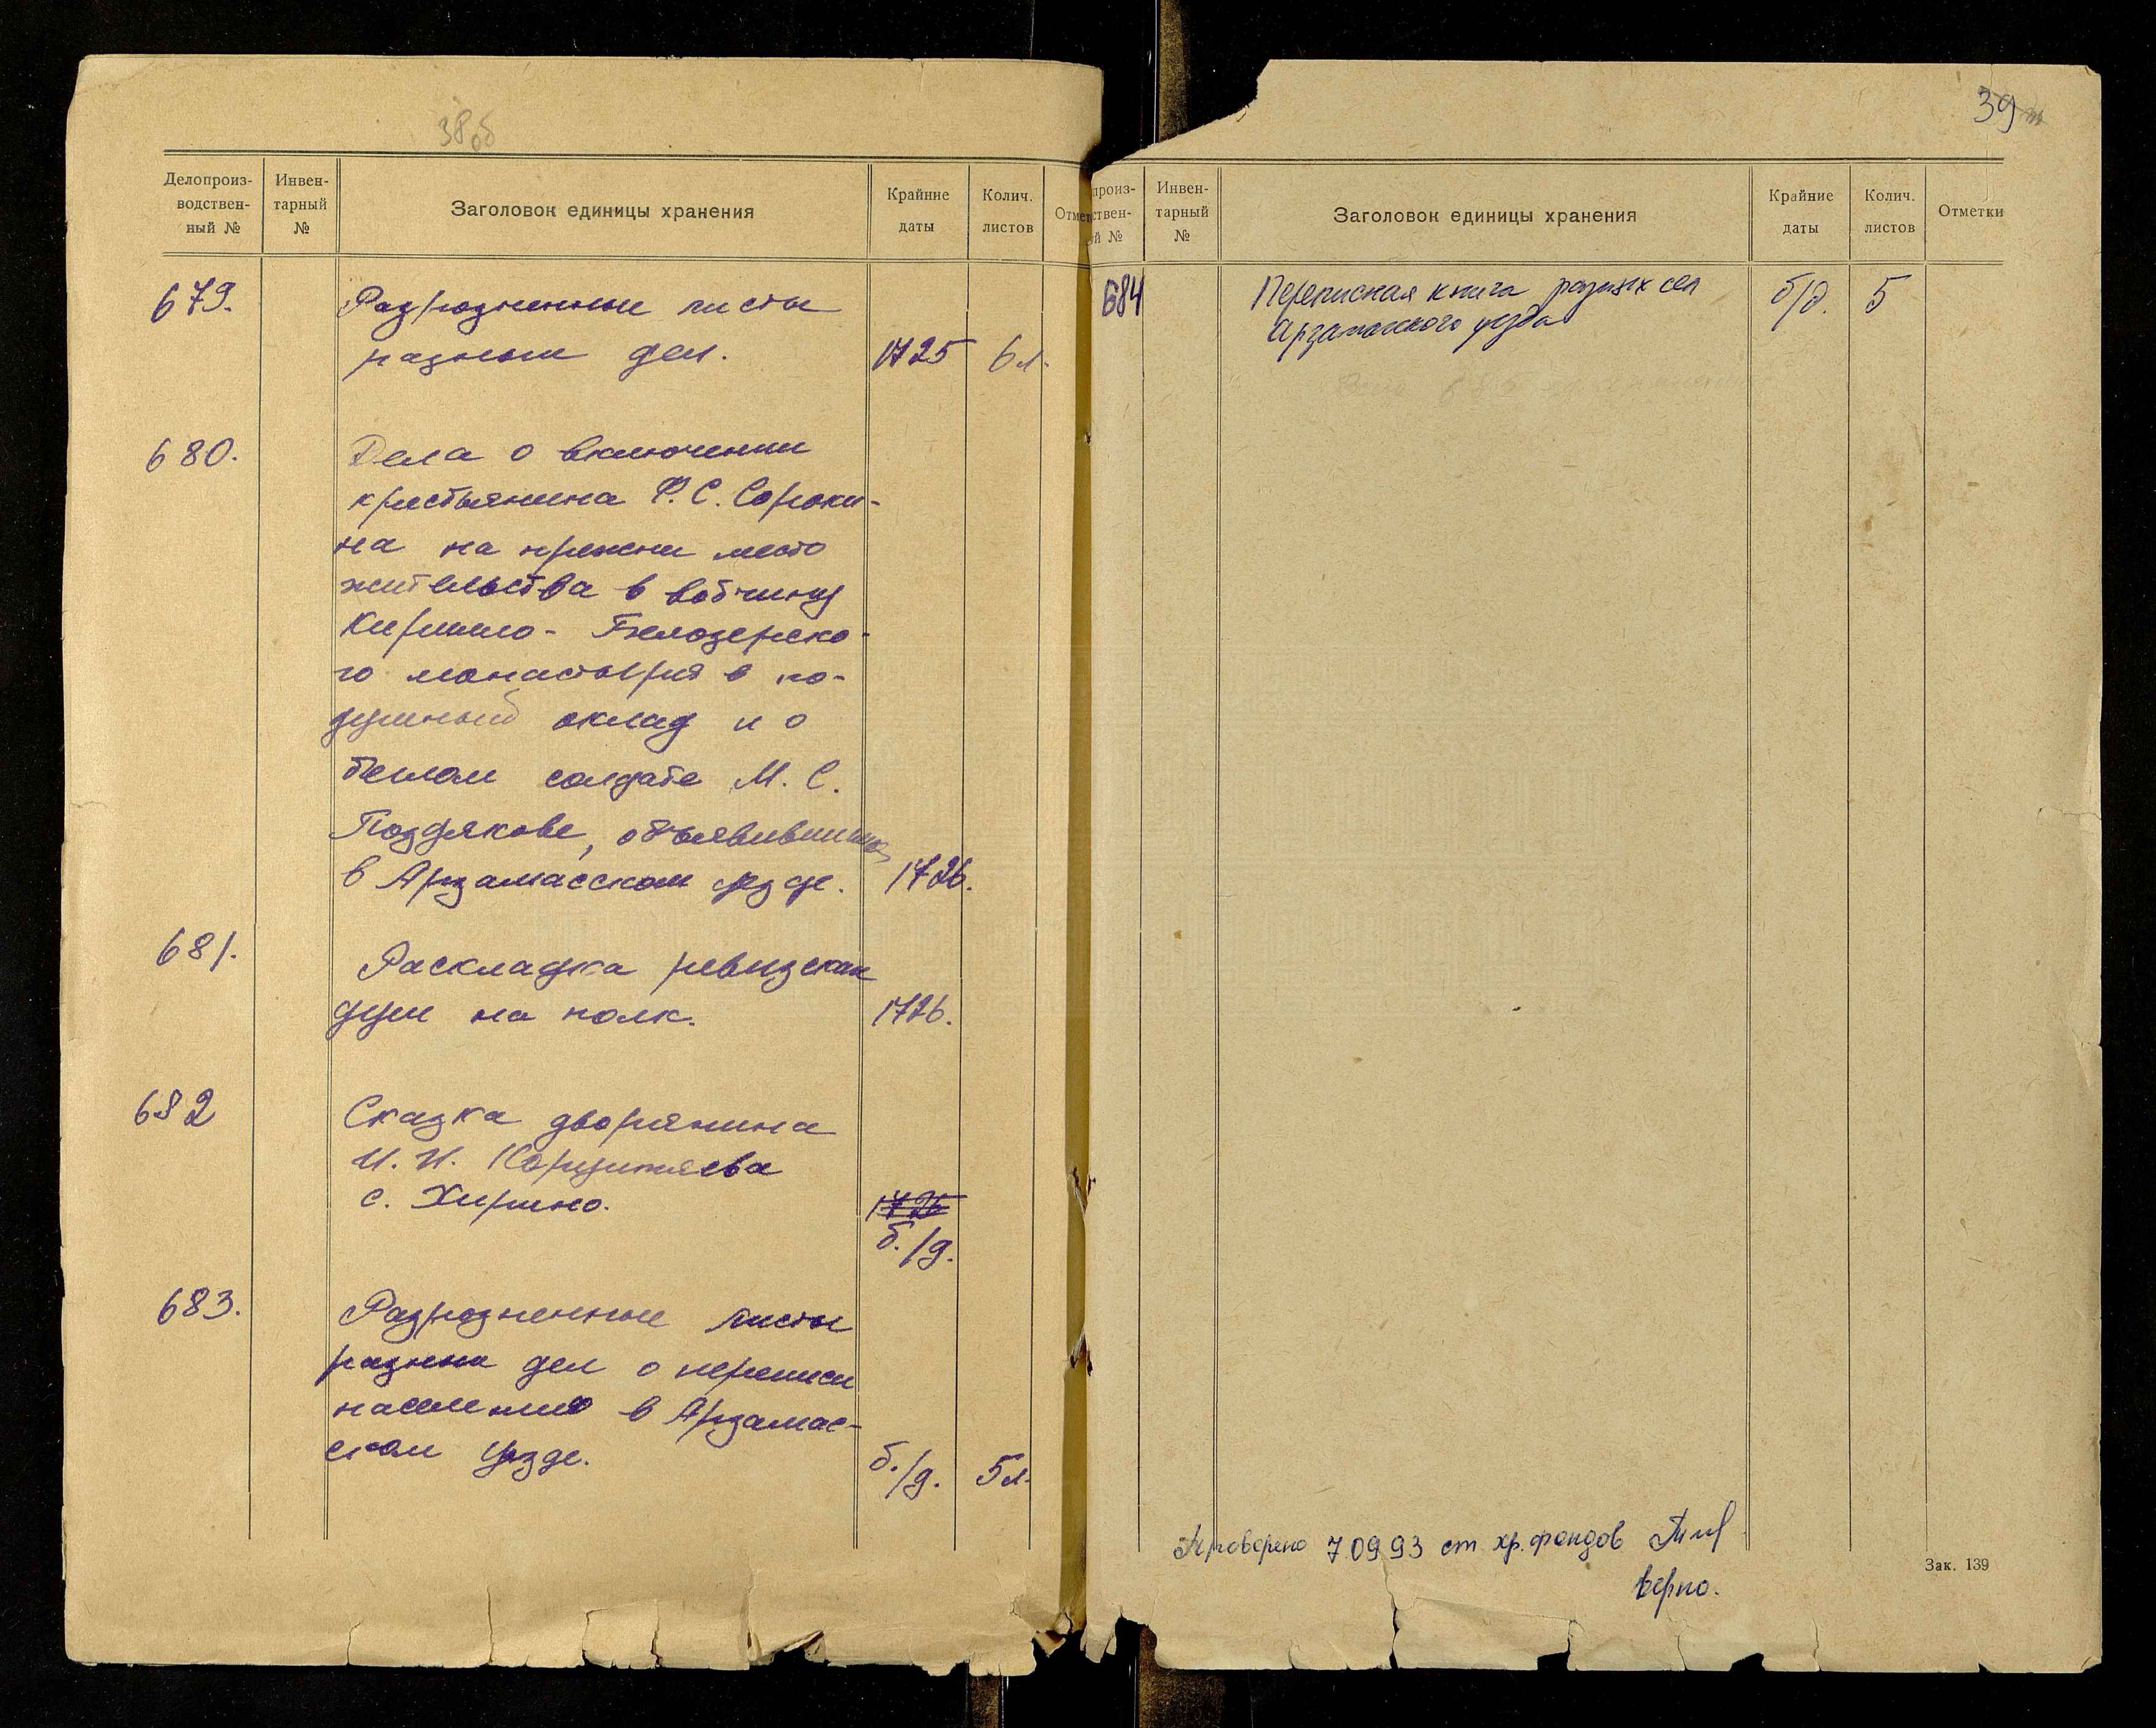 38об
Делопроиз-
водствен-
ный №
Инвен-
тарный
№
Заголовок единицы хранения
Крайние
даты
Колич.
листов
Отмет
679.
Разрозненные листы
разных дел.
1725
6 л.
680.
Дела о включении
крестьянина Ф. С. Сороки-
на на прежни место
жительства в вотчину
Кирилло-Белозерско-
го монастыря в по-
душный оклад и о
беглом солдате М. С.
Поздякове, объявившимся
в Арзамасском уезде.
1726.
681.
Раскладка ревизских
душ на полк.
1726.
682
Сказка дворянина
И. И.
с. Хирино.
1726
б./д.
683.
Разрозненные листы
разных дел о переписи
населения в Арзамас-
ском уезде.
б./д.
5 л.
39
произ-
ствен-
й №
Инвен-
тарный
№
Заголовок единицы хранения
Крайние
даты
Колич.
листов
Отметки
684
Переписная книга разных сел
Арзамасского уезда
б/д.
5
Проверено 7 09 93 ст. хр. фондов
верно.
Зак. 139